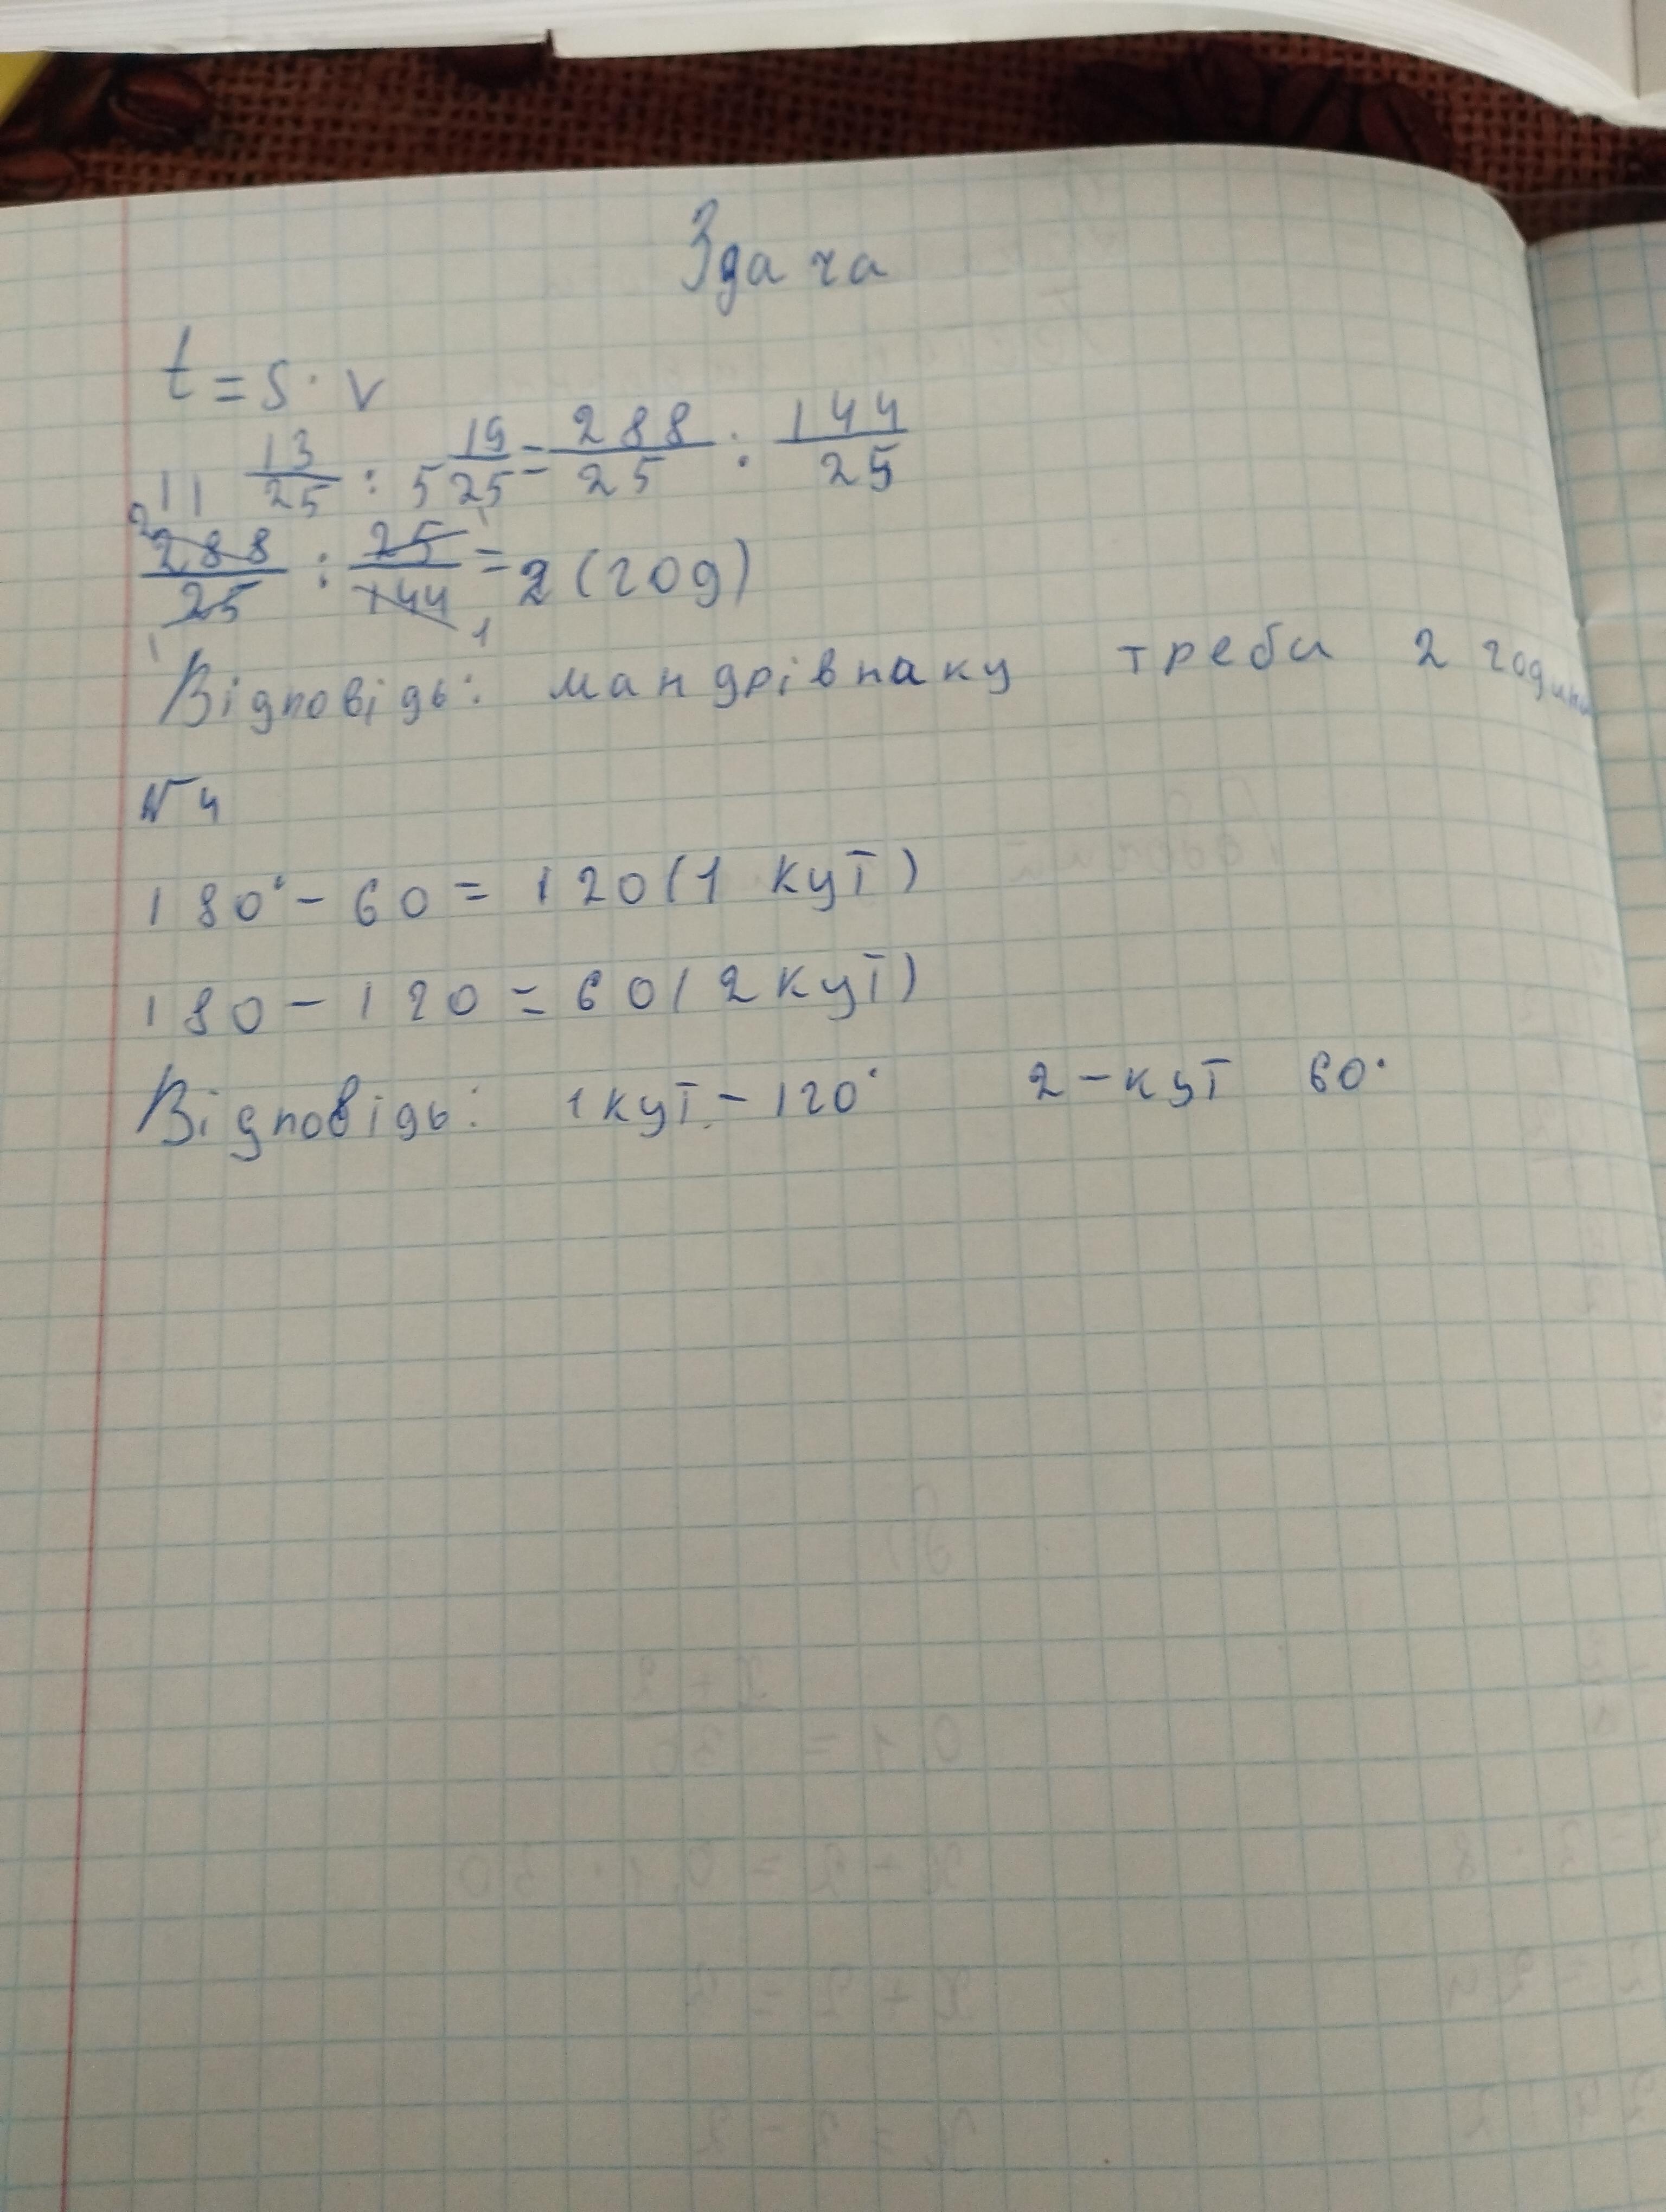 Здача
t = S · v
11 13/25 : 5 19/25 = 288/25 : 144/25
288/25 : 25/144 = 2 (год)
Відповідь: мандрівнаку треби 2 години
№4
180° - 60 = 120 (1 кут)
180 - 120 = 60 (2 кут)
Відповідь: 1 кут - 120° 2 - кут 60°